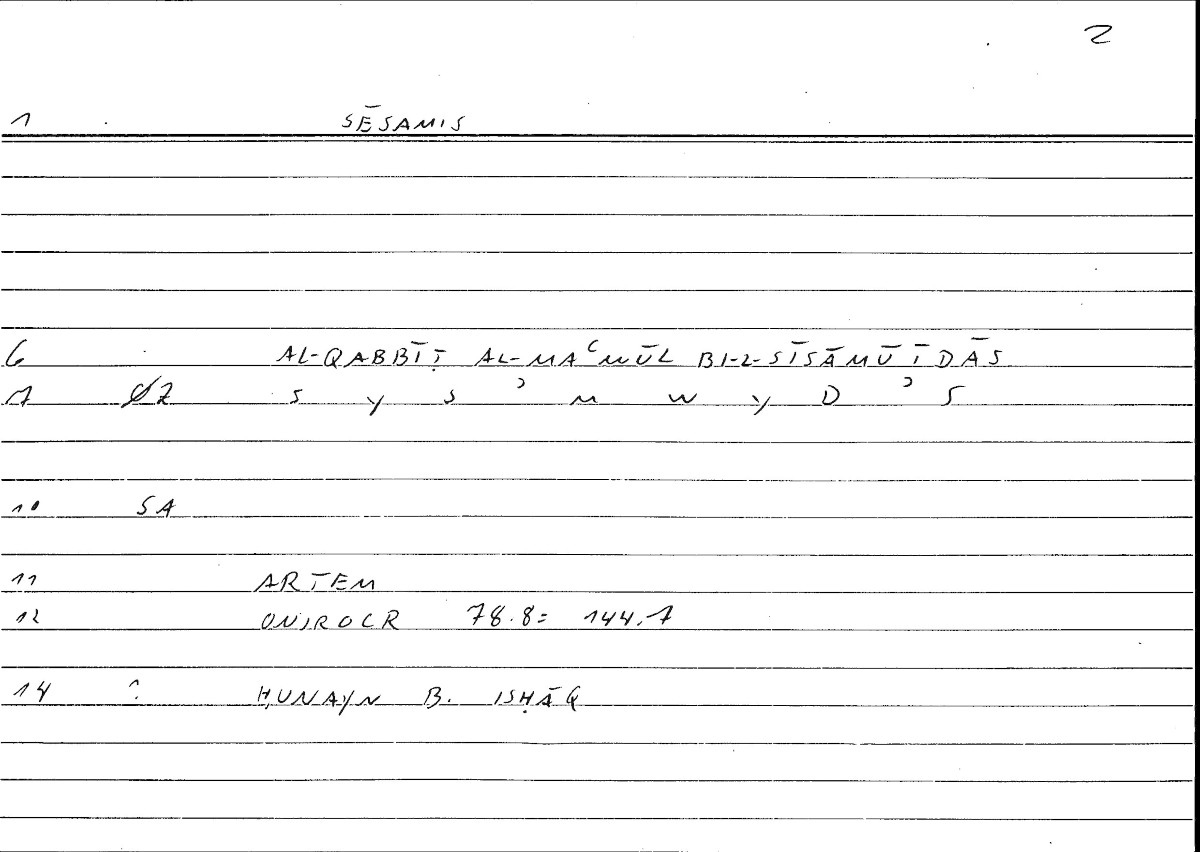 2
1 SĒSAMIS
6 AL-QABBĪṬ AL-MAʿMŪL BI-L-SĪSĀMŪĪDĀS
7 ØZ s y s ʾ m w y D ʾ s
10 SA
11 ARTEM
12 ONIROCR 78.8= 144.7
14 ? ḤUNAYN B. ISḤĀQ